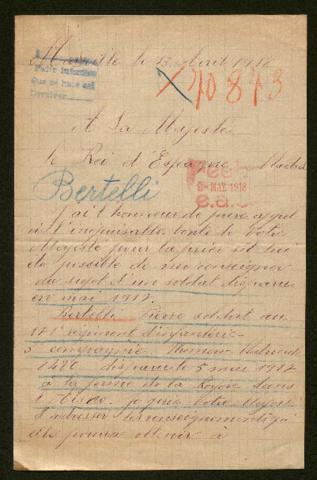 Marseille le 13 Avril 1918
Pedir informes
Que se hace del
X 40873
A Sa Majesté
le Roi d'Espagne Madrid
8 - MAY. 1918
e.a.c.
Bertelli
J'ai l'honneur de faire appel
à l'inépuisable bonté de Votre
Majesté pour la prier s'il lui
de possible de me renseigner
du sujet d'un soldat disparu
en mai 1917.
Bertelli Pierre soldat au
171e régiment d'infanterie
5 compagnie Numéro Matricule
1420 disparu le 5 mai 1917
à la ferme de la Royère dans
l'Aisne. je prie Votre Majesté
d'adresser les renseignements qu
elle pourra obtenir à